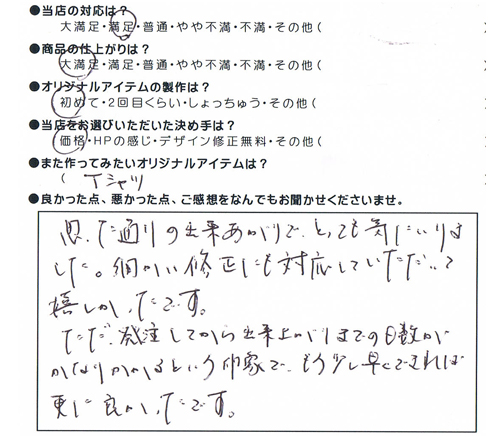 ●当店の対応は?
大満足・満足・普通・やや不満・不満・その他(
●商品の仕上がりは?
大満足・満足・普通・やや不満・不満・その他(
●オリジナルアイテムの製作は?
初めて・2回目くらい・しょっちゅう・その他(
●当店をお選びいただいた決め手は?
価格・HPの感じ・デザイン修正無料・その他(
●また作ってみたいオリジナルアイテムは?
( Tシャツ
●良かった点、悪かった点、ご感想をなんでもお聞かせくださいませ。
思った通りの出来あがりで、とっても気にいりま
した。細かい修正にも対応していただいて
嬉しかったです。
ただ、発注してから出来上がりまでの日数が
かなりかかるという印象で、もう少し早くできれば
更に良かったです。